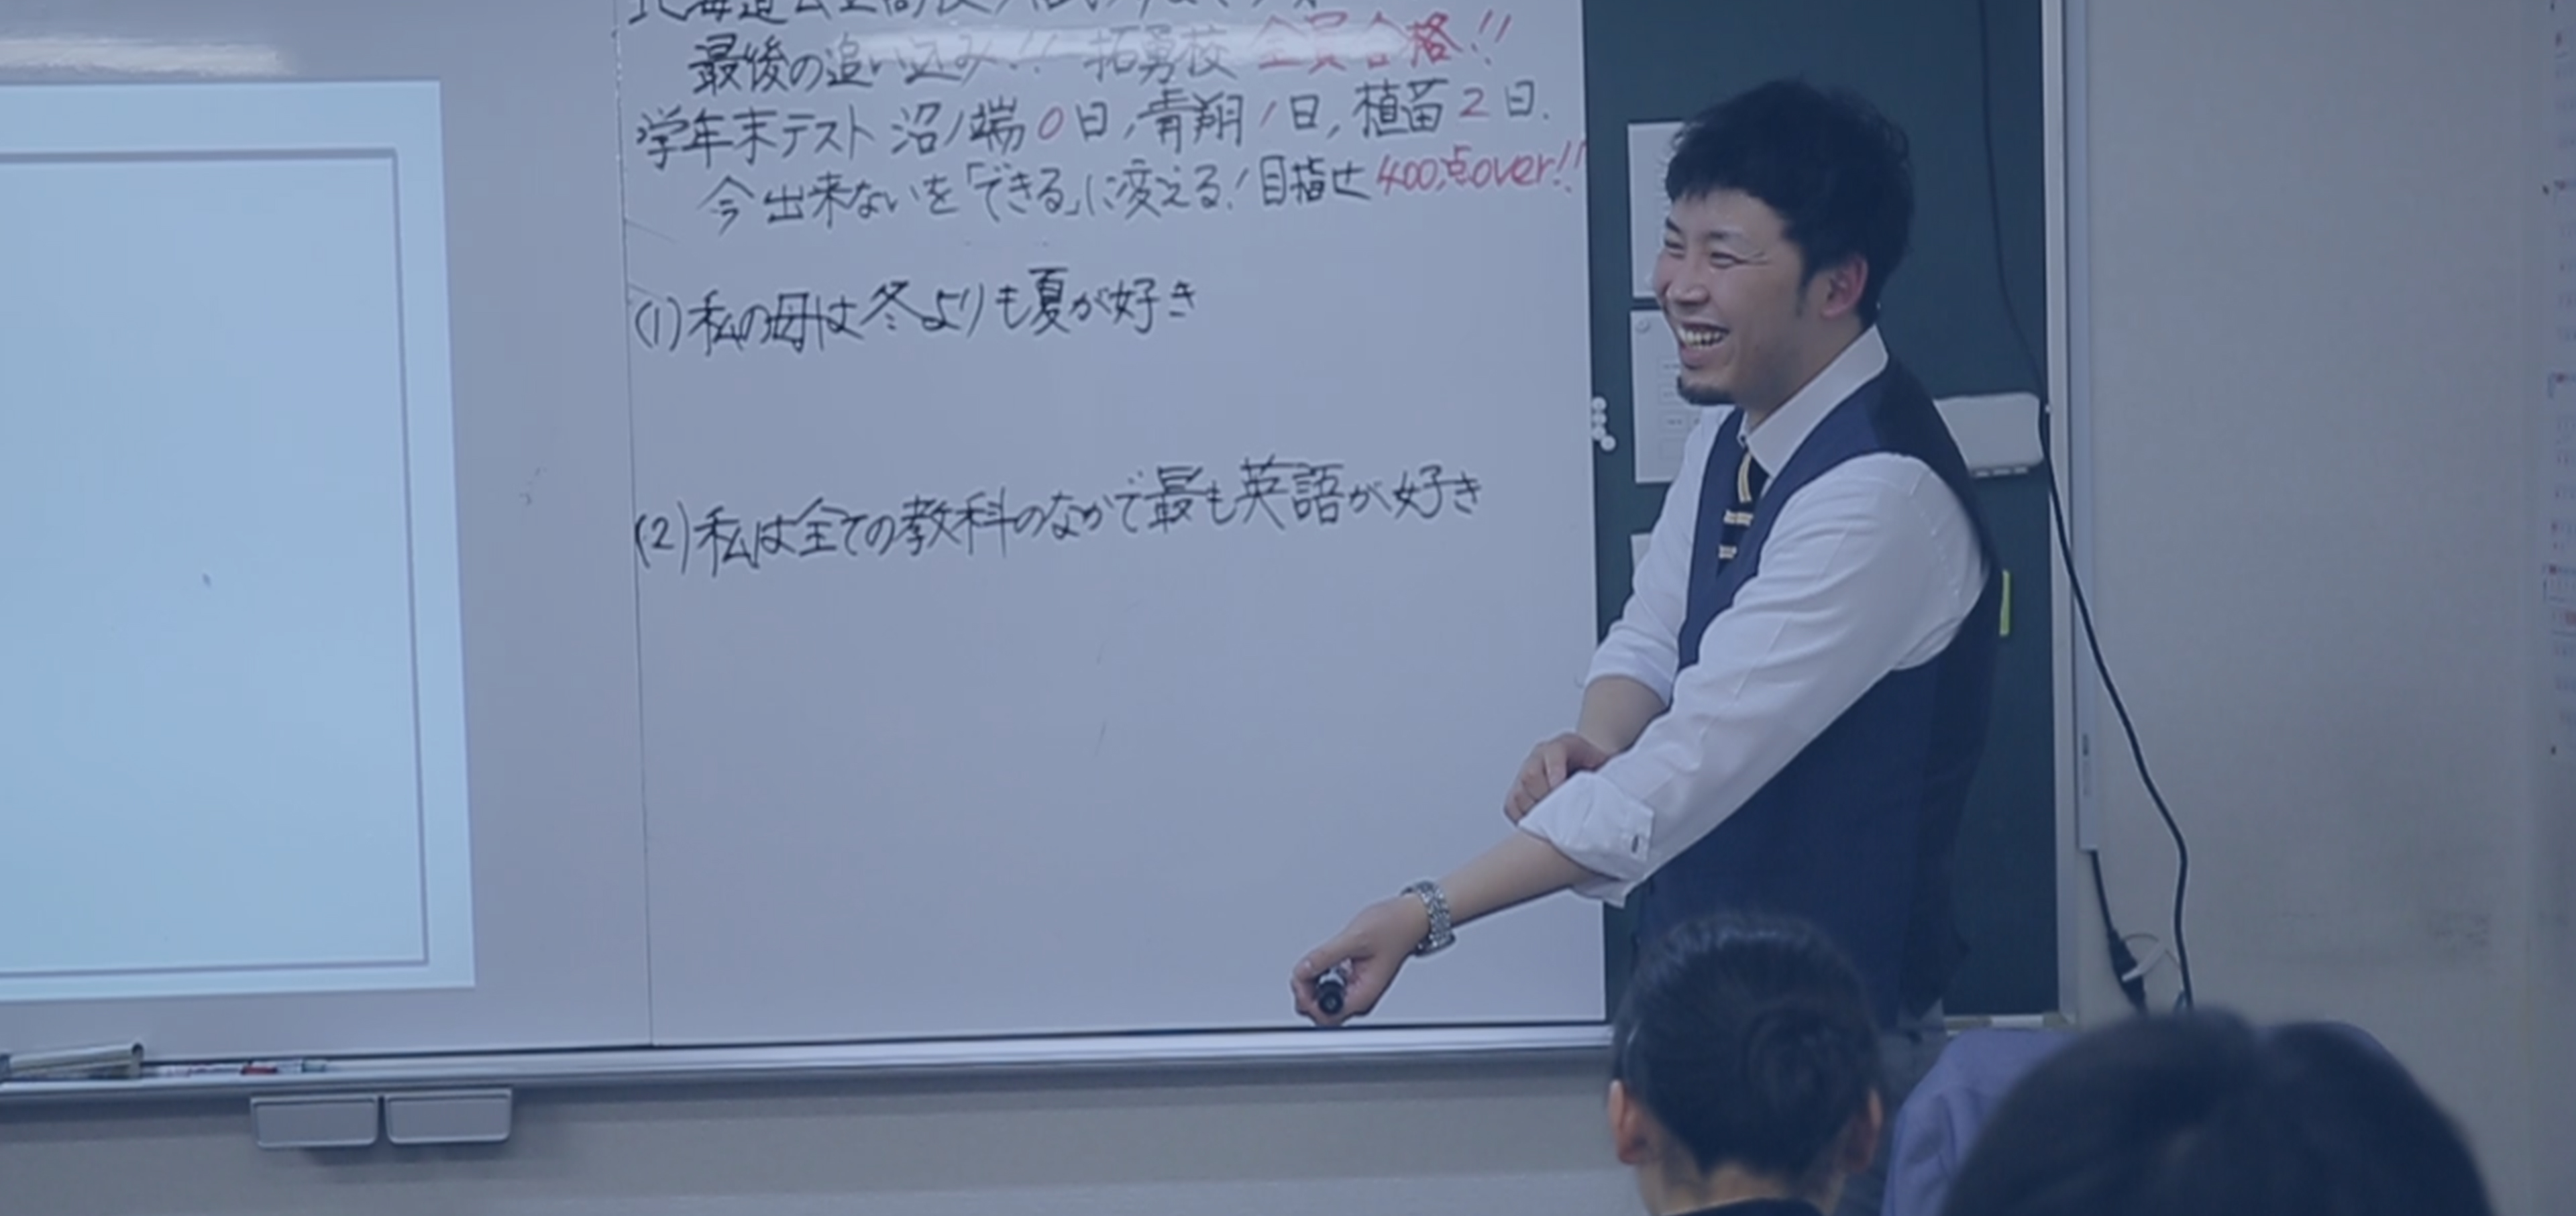 北海道公立高校入試
最後の追い込み!! 拓勇校 全員合格!!
学年末テスト 沼ノ端0日,青翔1日,植苗2日.
今出来ないを「できる」に変える!目指せ400点over!!
(1)私の母は冬よりも夏が好き
(2)私は全ての教科のなかで最も英語が好き